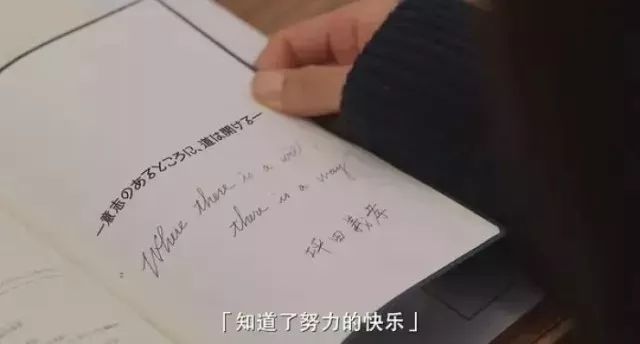 ー意志のあるところに、道は開けるー
Where there is a will,
there is a way
坪田義孝
「知道了努力的快乐」